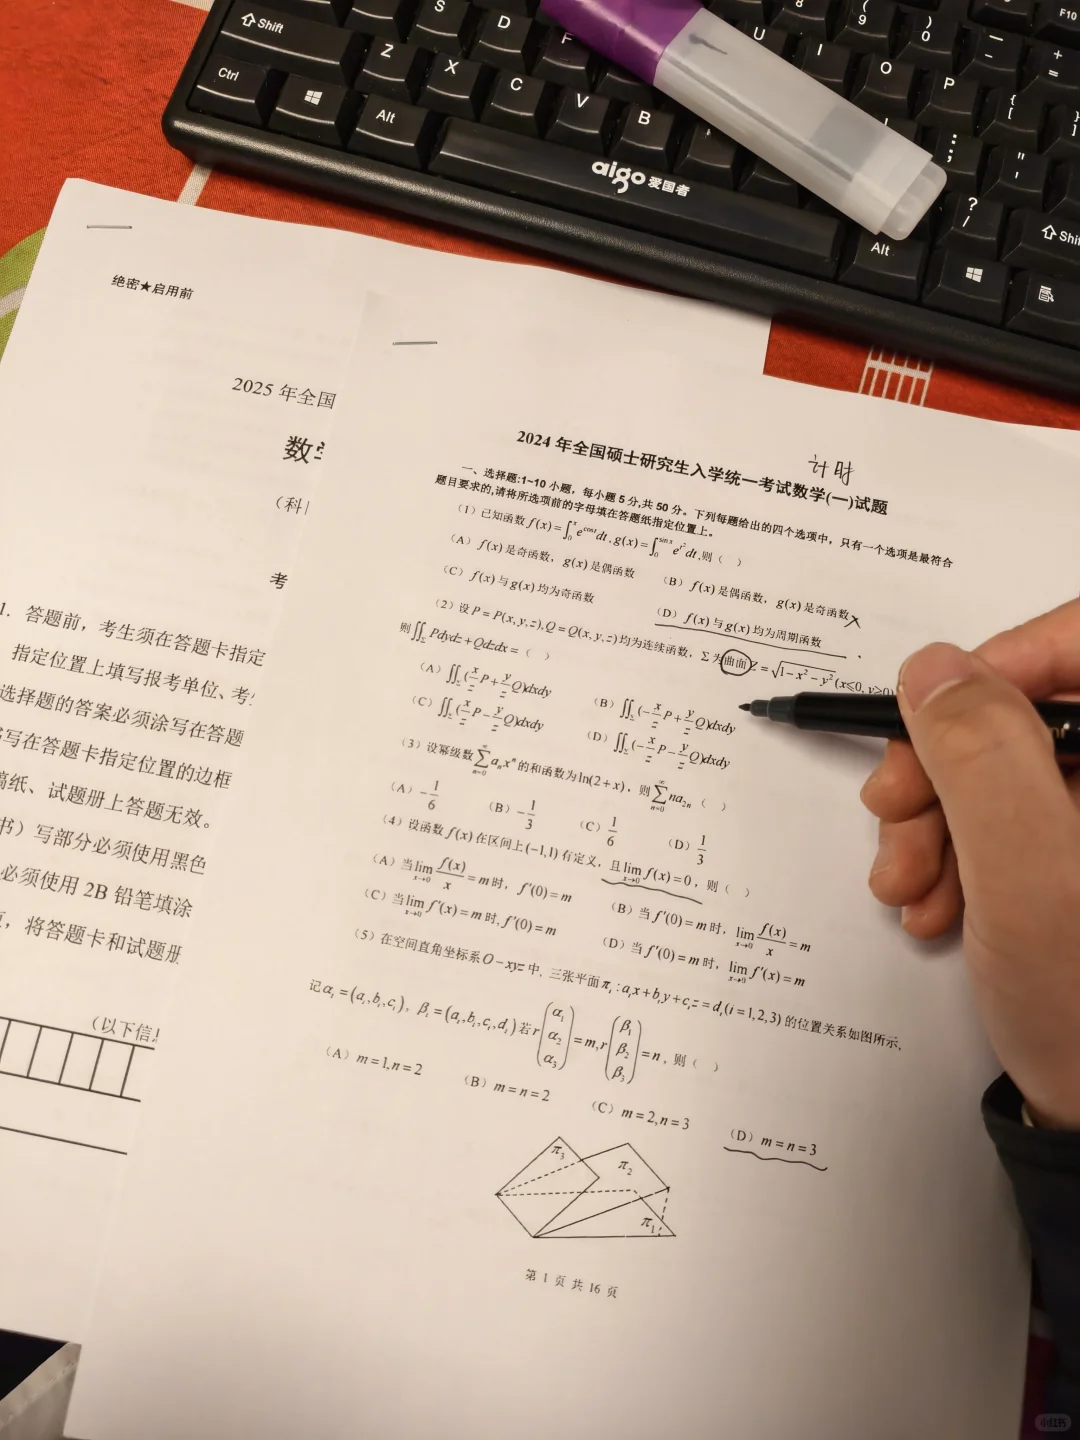 Shift
S
D
F
8
( 9
) 0
F10
Ctrl
Z
X
C
V
B
U
I
O
P
Alt
aigo 爱国者
? /
Alt
Shi
绝密★启用前
2025 年全国
数学
(科
考
1. 答题前，考生须在答题卡指定
指定位置上填写报考单位、考
选择题的答案必须涂写在答题
写在答题卡指定位置的边框
稿纸、试题册上答题无效。
书）写部分必须使用黑色
必须使用 2B 铅笔填涂
，将答题卡和试题册
（以下信
2024 年全国硕士研究生入学统一考试数学(一)试题
计时
一、选择题:1~10 小题，每小题 5 分,共 50 分。下列每题给出的四个选项中，只有一个选项是最符合
题目要求的,请将所选项前的字母填在答题纸指定位置上。
（1）已知函数 f(x)=∫₀ˣ e^{cost}dt, g(x)=∫₀^{sinx} e^{t²}dt,则（ ）
（A）f(x)是奇函数，g(x)是偶函数 （B）f(x)是偶函数，g(x)是奇函数
（C）f(x)与g(x)均为奇函数 （D）f(x)与g(x)均为周期函数
（2）设 P=P(x,y,z),Q=Q(x,y,z)均为连续函数，Σ为曲面Z=√(1-x²-y²)(x≤0,y≥0)
则∬_Σ Pdydz+Qdzdx=（ ）
（A）∬_Σ(x/z P+y/z Q)dxdy （B）∬_Σ(-x/z P+y/z Q)dxdy
（C）∬_Σ(x/z P-y/z Q)dxdy （D）∬_Σ(-x/z P-y/z Q)dxdy
（3）设幂级数∑_{n=0}^∞ aₙxⁿ的和函数为ln(2+x)，则∑_{n=0}^∞ na₂ₙ（ ）
（A）-1/6 （B）-1/3 （C）1/6 （D）1/3
（4）设函数 f(x)在区间上(-1,1)有定义，且lim_{x→0} f(x)=0，则（ ）
（A）当lim_{x→0} f(x)/x=m时，f′(0)=m （B）当f′(0)=m时，lim_{x→0} f(x)/x=m
（C）当lim_{x→0} f′(x)=m时,f′(0)=m （D）当f′(0)=m时，lim_{x→0} f′(x)=m
（5）在空间直角坐标系O-xyz中，三张平面π_i:a_ix+b_iy+c_iz=d_i(i=1,2,3)的位置关系如图所示，
记α_i=(a_i,b_i,c_i)，β_i=(a_i,b_i,c_i,d_i)若r(α₁ α₂ α₃)=m,r(β₁ β₂ β₃)=n，则（ ）
（A）m=1,n=2 （B）m=n=2 （C）m=2,n=3 （D）m=n=3
π₃
π₂
π₁
第 1 页 共 16 页
小红书